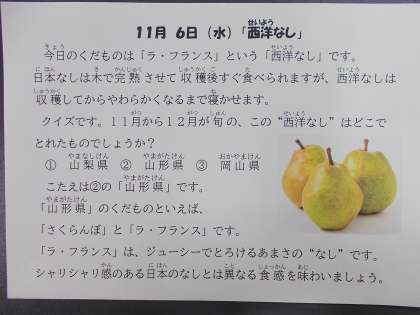 11月 6日（水）「西洋なし」
今日のくだものは「ラ・フランス」という「西洋なし」です。
日本なしは木で完熟させて収穫後すぐ食べられますが、西洋なしは
収穫してからやわらかくなるまで寝かせます。
クイズです。11月から12月が旬の、この“西洋なし”はどこで
とれたものでしょうか？
① 山梨県 ② 山形県 ③ 岡山県
こたえは②の「山形県」です。
「山形県」のくだものといえば、
「さくらんぼ」と「ラ・フランス」です。
「ラ・フランス」は、ジューシーでとろけるあまさの“なし”です。
シャリシャリ感のある日本のなしとは異なる食感を味わいましょう。